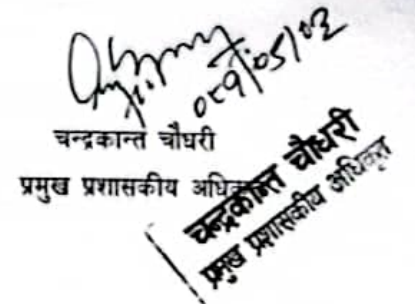 चन्द्रकान्त चौधरी
प्रमुख प्रशासकीय
चन्द्रकान्त चौधरी
प्रमुख प्रशासकीय अधिकृत